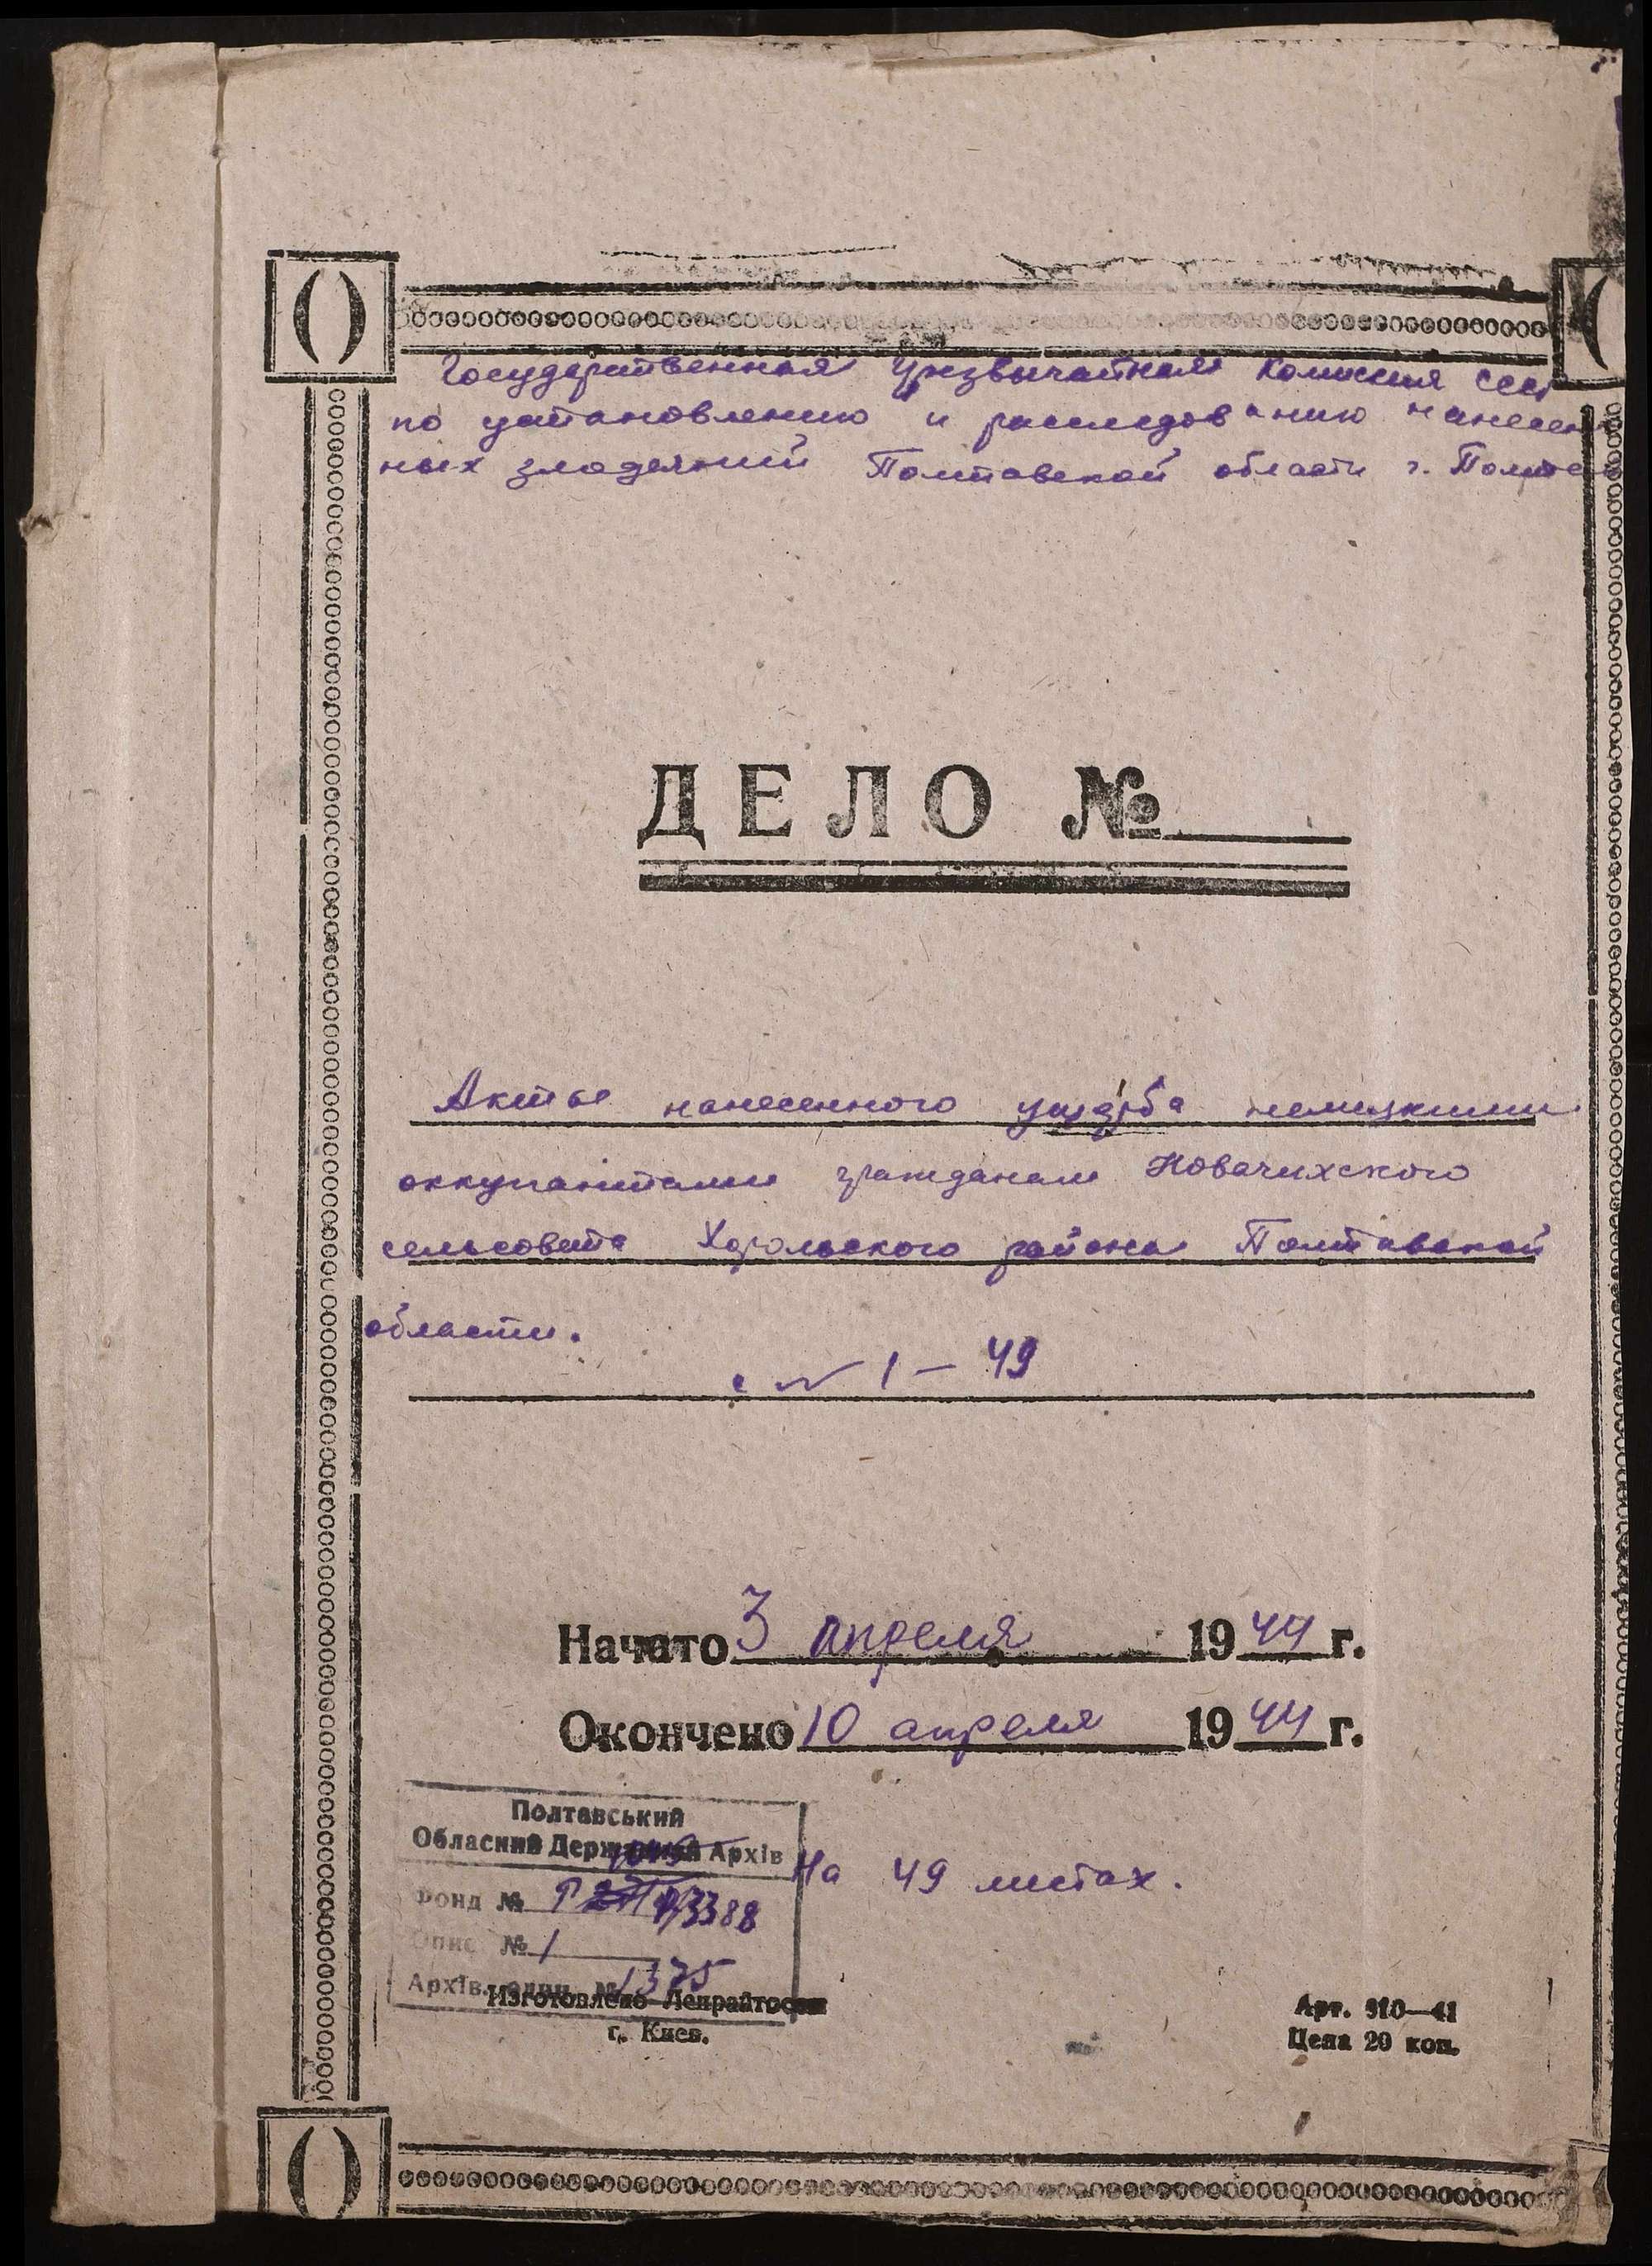 Государственная Чрезвычайная Комиссия ССС
по установлению и расследованию нанесен
ных злодеяний Полтавской области г. Полтав
ДЕЛО №
Акты нанесенного ущерба немецкими
оккупантами гражданам Новачихского
сельсовета Хорольского района Полтавской
области.
с № 1 — 49
Начато 3 апреля 1944 г.
Окончено 10 апреля 1944 г.
Полтавський
Обласний Державний Архів
На 49 листах.
Фонд № Р 3388
Опис № 1
Архів. один. № 1375
Изготовлено
г. Киев.
Арт. 310—41
Цена 20 коп.